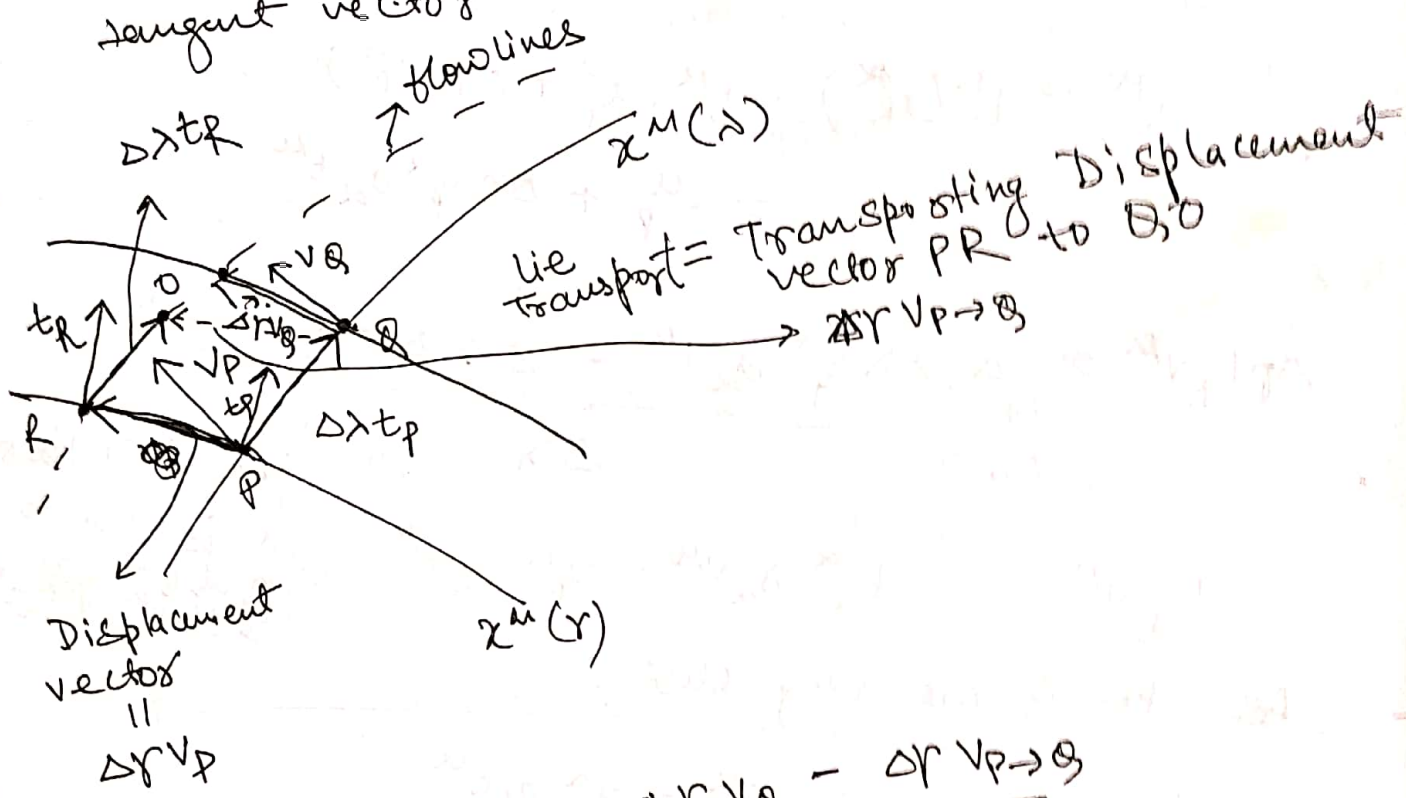 tangent vector
flowlines
Δλ t_R
x^M(λ)
Lie Transport = Transporting Displacement
vector PR to Q,O
Δr V_P→Q
V_Q
O
t_R
Δr V_Q
Q
V_P
t_P
R
Δλ t_P
P
x^M(r)
Displacement
vector
||
Δr V_P
- Δr V_P→Q